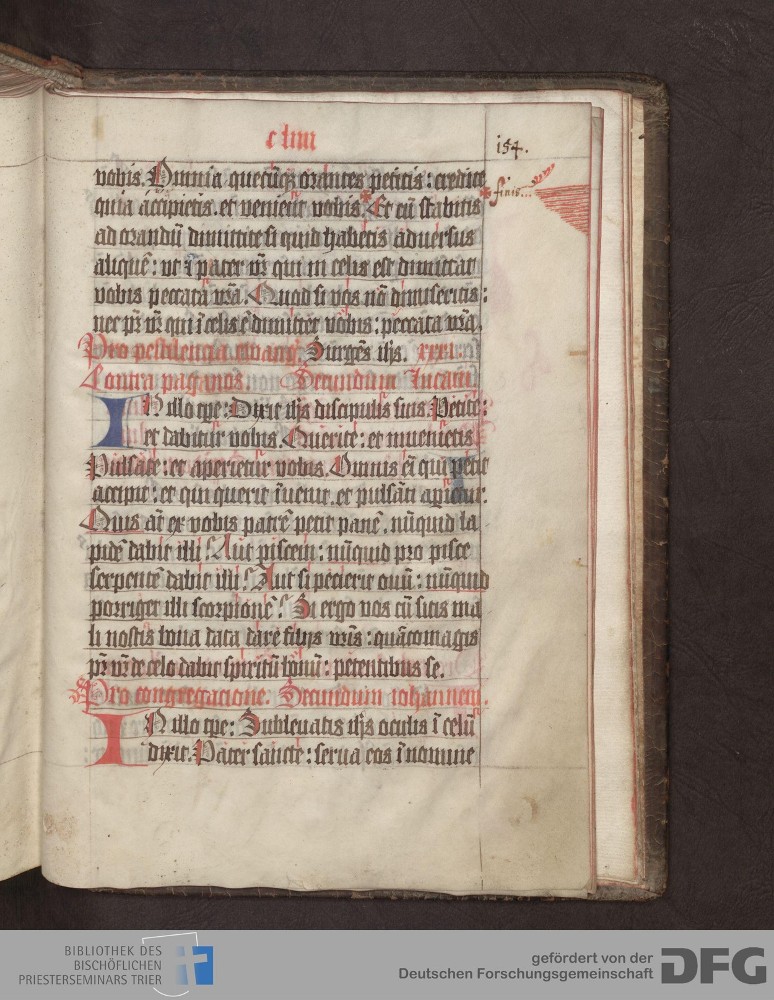 cliiii
154.
vobis. Omnia quecūq; orantes petitis: credite
quia accipietis. et venient vobis. Et cū stabitis
finis...
ad orandū dimittite si quid habetis adversus
aliquē: ut ī pater vr̄ qui in celis est dimittat
vobis peccata vr̄a. Quod si vos nō dimiseritis:
nec pr̄ vr̄ qui ī celis ē dimittet vobis: peccata vr̄a.
Pro pestilencia ewang̅. Surgēs ih̄s. xxxi.
Contra paganos. Secundum lucam.
IN illo tp̄e: Dixit ih̄s discipulis suis. Petite:
et dabitur vobis. Querite: et invenietis
Pulsate: et aperietur vobis. Omnis ēi qui petit
accipit: et qui querit īvenit. et pulsāti apietur.
Quis at̄ ex vobis patrē petit panē. nūquid la
pidē dabit illi? Aut piscem: nūquid pro pisce
serpentē dabit illi? Aut si pecierit ovū: nūquid
porriget illi scorpionē? Si ergo vos cū sitis ma
li nostis bona data dare filiis vr̄is: quāto magis
pr̄ vr̄ de celo dabit spiritū bonū: petentibus se.
Pro congregacione. Secundum iohannem.
IN illo tp̄e: Sublevatis ih̄s oculis ī celū
dixit. Pater sancte: serva eos ī nomine
BIBLIOTHEK DES
BISCHÖFLICHEN
PRIESTERSEMINARS TRIER
gefördert von der
Deutschen Forschungsgemeinschaft
DFG